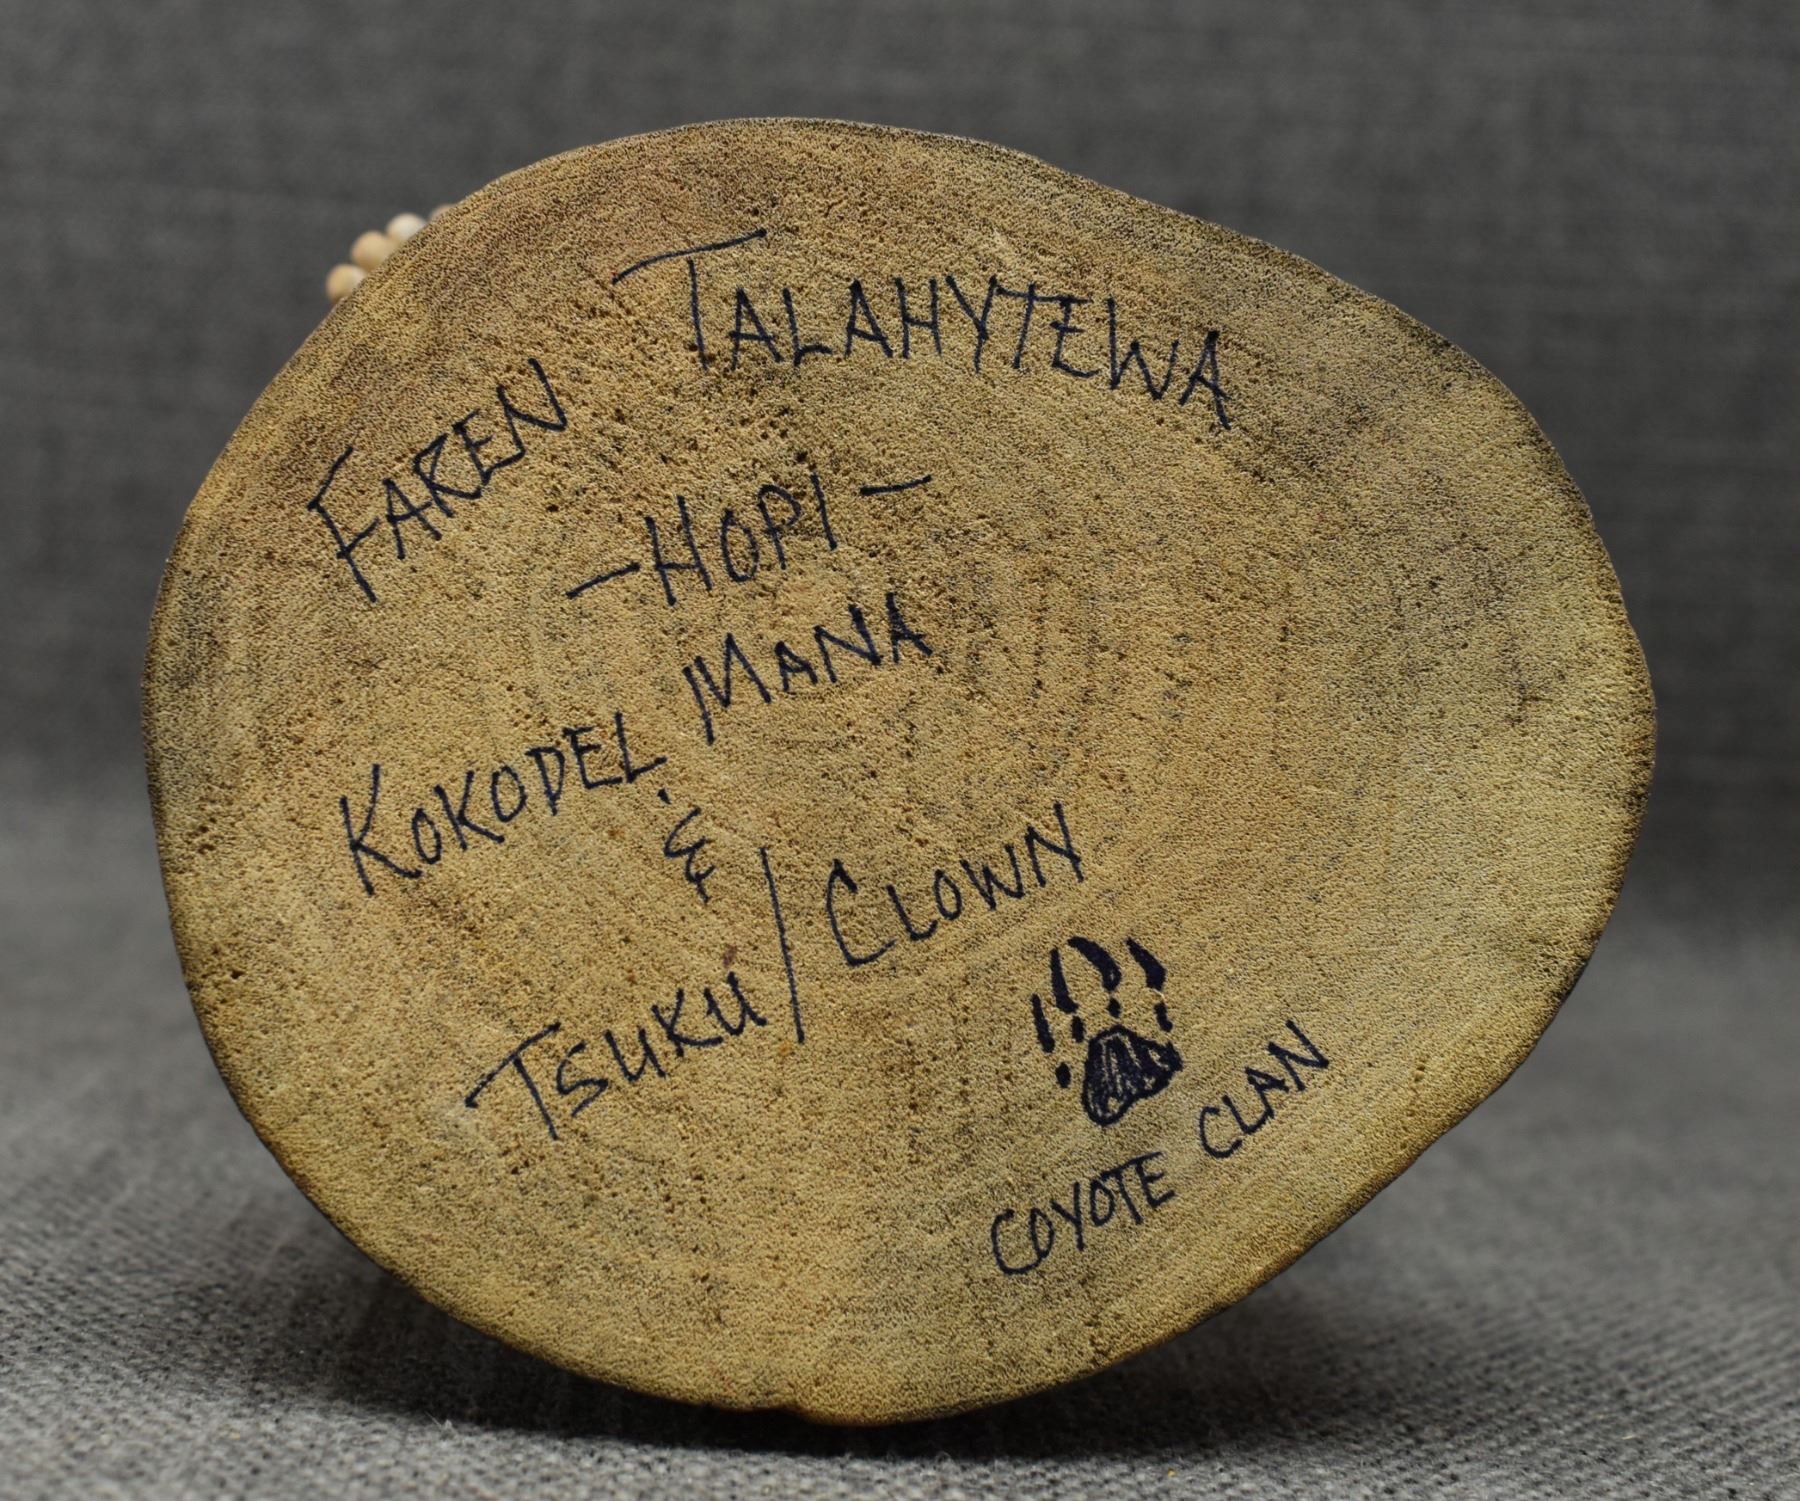 FAREN TALAHYTEWA
-HOPI-
KOKODEL MANA
&
TSUKU/CLOWN
COYOTE CLAN